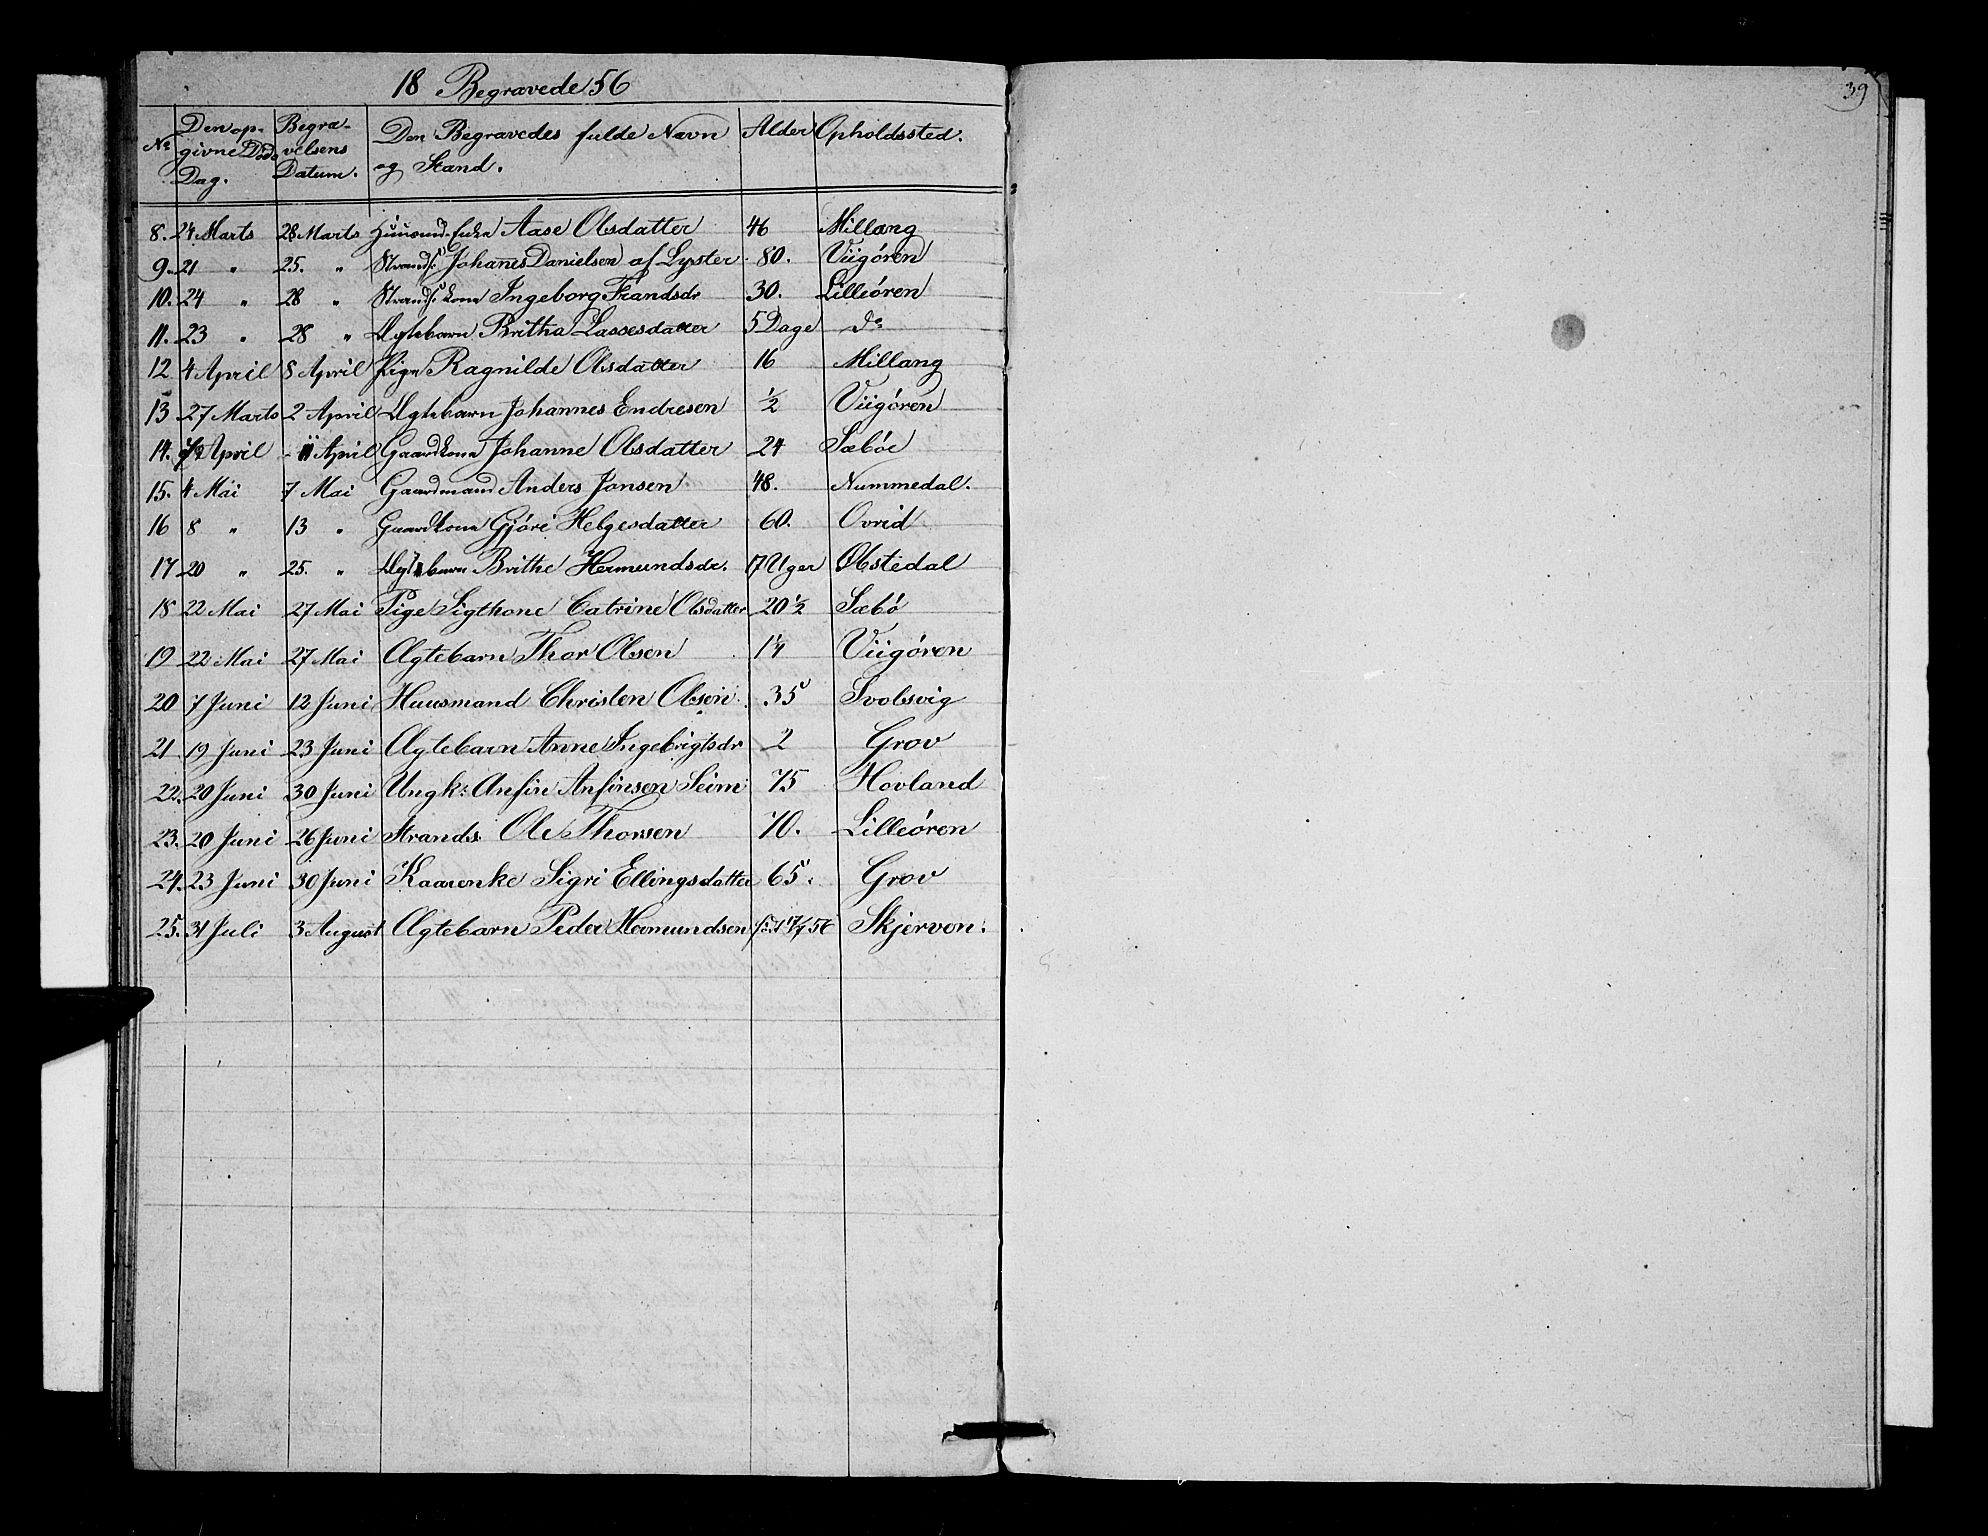 18 Begravede 56
39
No Den opgivne Døds Dag. Begravelsens Datum. Den Begravedes fulde Navn og Stand. Alder Opholdssted.
8. 24 Marts 28 Marts Aase Olsdatter 46 Millang
9. 21 " 25. " Strands: Johanes Danielsen af Lyster 80. Viigören
10. 24 " 28 " Strands: kone Ingeborg Frandsdr 30. Lilleören
11. 23 " 28 " Ægtebarn Britha Lassesdatter 5 Dage do
12 4 April 8 April Pige Ragnilde Olsdatter 16 Millang
13 27 Marts 2 April Ægtebarn Johannes Endresen 1/2 Viigören
14. April 11 April Gaardkone Johanne Olsdatter 24 Sæböe
15. 4 Mai 7 Mai Gaardmand Anders Jonsen 48. Nummedal.
16 8 " 13 " Gaardkone Gjöri Helgesdatter 60. Ovrid
17 20 " 25. " Ægtebarn Brithe Hermundsdr. 17 Uger Obstedal
18 22 Mai 27 Mai Pige Sigthone Catrine Olsdatter 20 1/2 Sæbö
19 22 Mai 27 Mai Ægtebarn Thor Olsen 1 1/4 Viigören
20 7 Juni 12 Juni Huusmand Christen Olsen 35 Svolsvig
21 19 Juni 23 Juni Ægtebarn Anne Ingebrigtsdr 2 Grov
22. 20 Juni 30 Juni Ungk: Anfin Anfinsen Seim 75 Hovland
23. 20 Juni 26 Juni Strands Ole Thorsen 70. Lilleören
24. 23 Juni 30 Juni Kaarenke Sigri Ellingsdatter 65. Grov
25. 31 Juli 3 August Ægtebarn Peder Hermundsen föd 17/7 56 Skjerven.